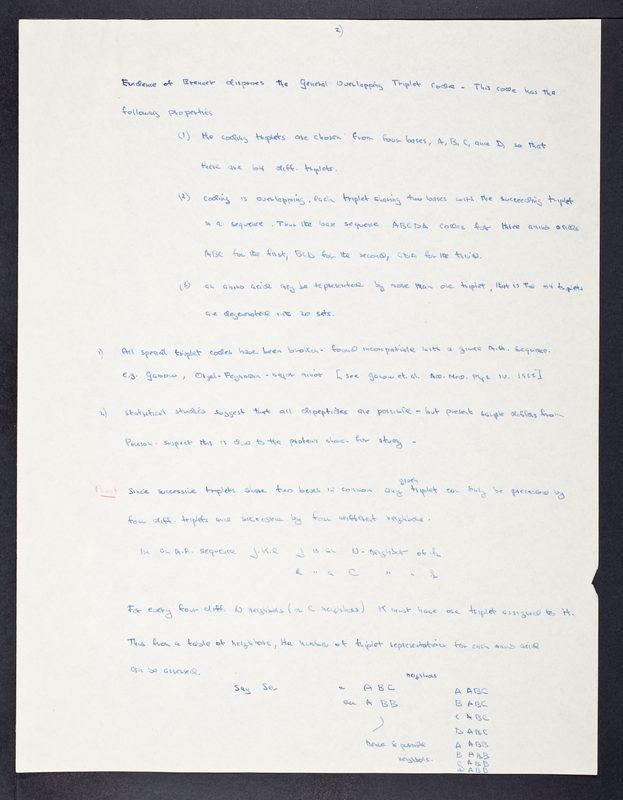 2)
Evidence of Brenner disproves the General Overlapping Triplet Code - This code has the
following properties
(1) The coding triplets are chosen from four bases, A, B, C, and D, so that
there are 64 diff. triplets.
(2) Coding is overlapping, each triplet sharing two bases with the succeeding triplet
in a sequence. Thus the base sequence ABCDA codes for three amino acids
ABC for the first, BCD for the second, CDA for the third.
(3) an amino acid may be represented by more than one triplet, that is the 64 triplets
are degenerated into 20 sets.
1) All special triplet codes have been broken - found incompatible with a given A.A. sequence.
e.g. Gamow, Orgel- - major minor [see Gamow et al. Adv. Med. Phys IV. 1955]
2) Statistical studies suggest that all dipeptides are possible - but present sample differs from
Poisson - suspect this is due to the proteins chosen for study -
Proof Since successive triplets share two bases in common any given triplet can only be preceded by
four diff. triplets and succeeded by four different neighbors.
In an A.A. sequence J.K.L J is an N-neighbor of k
L " a C " " k
For every four diff. N neighbors (or C neighbors) K must have one triplet assigned to it.
Thus from a table of neighbors, the number of triplet representations for each amino acid
can be assessed.
neighbors
Say Ser a ABC A ABC
an ABB B ABC
C ABC
D ABC
hence 8 possible A ABB
neighbors. B ABB
C ABB
D ABB